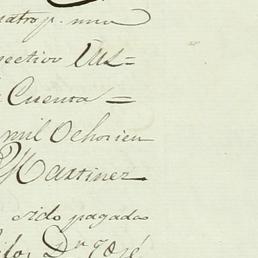 uatro p. mrs
pectivo
Cuenta =
mil Ochocien
Martinez
sido pagadas
Dn José